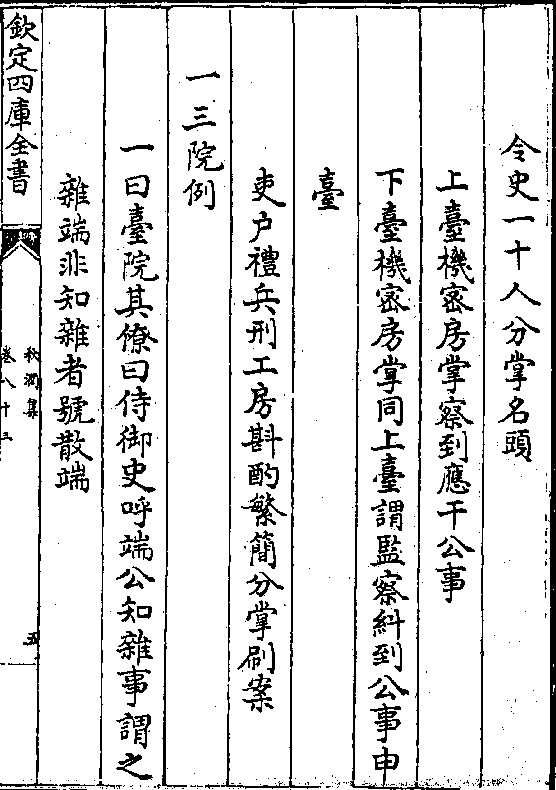 令史一十人分掌名頭
上臺機密房掌察到應干公事
下臺機密房掌同上臺謂監察糾到公事申
臺
吏户禮兵刑工房斟酌繁簡分掌刷案
一三院例
一曰臺院其僚曰侍御史呼端公知雜事謂之
雜端非知雜者號散端
欽定四庫全書
秋澗集
卷八十三
五